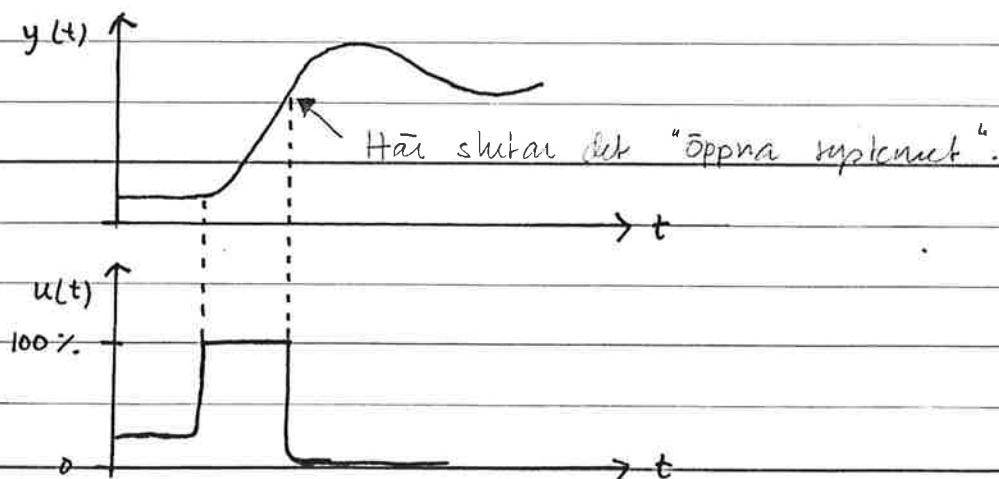 y(t)
Här slutar det "öppna systemet".
t
u(t)
100%
0
t